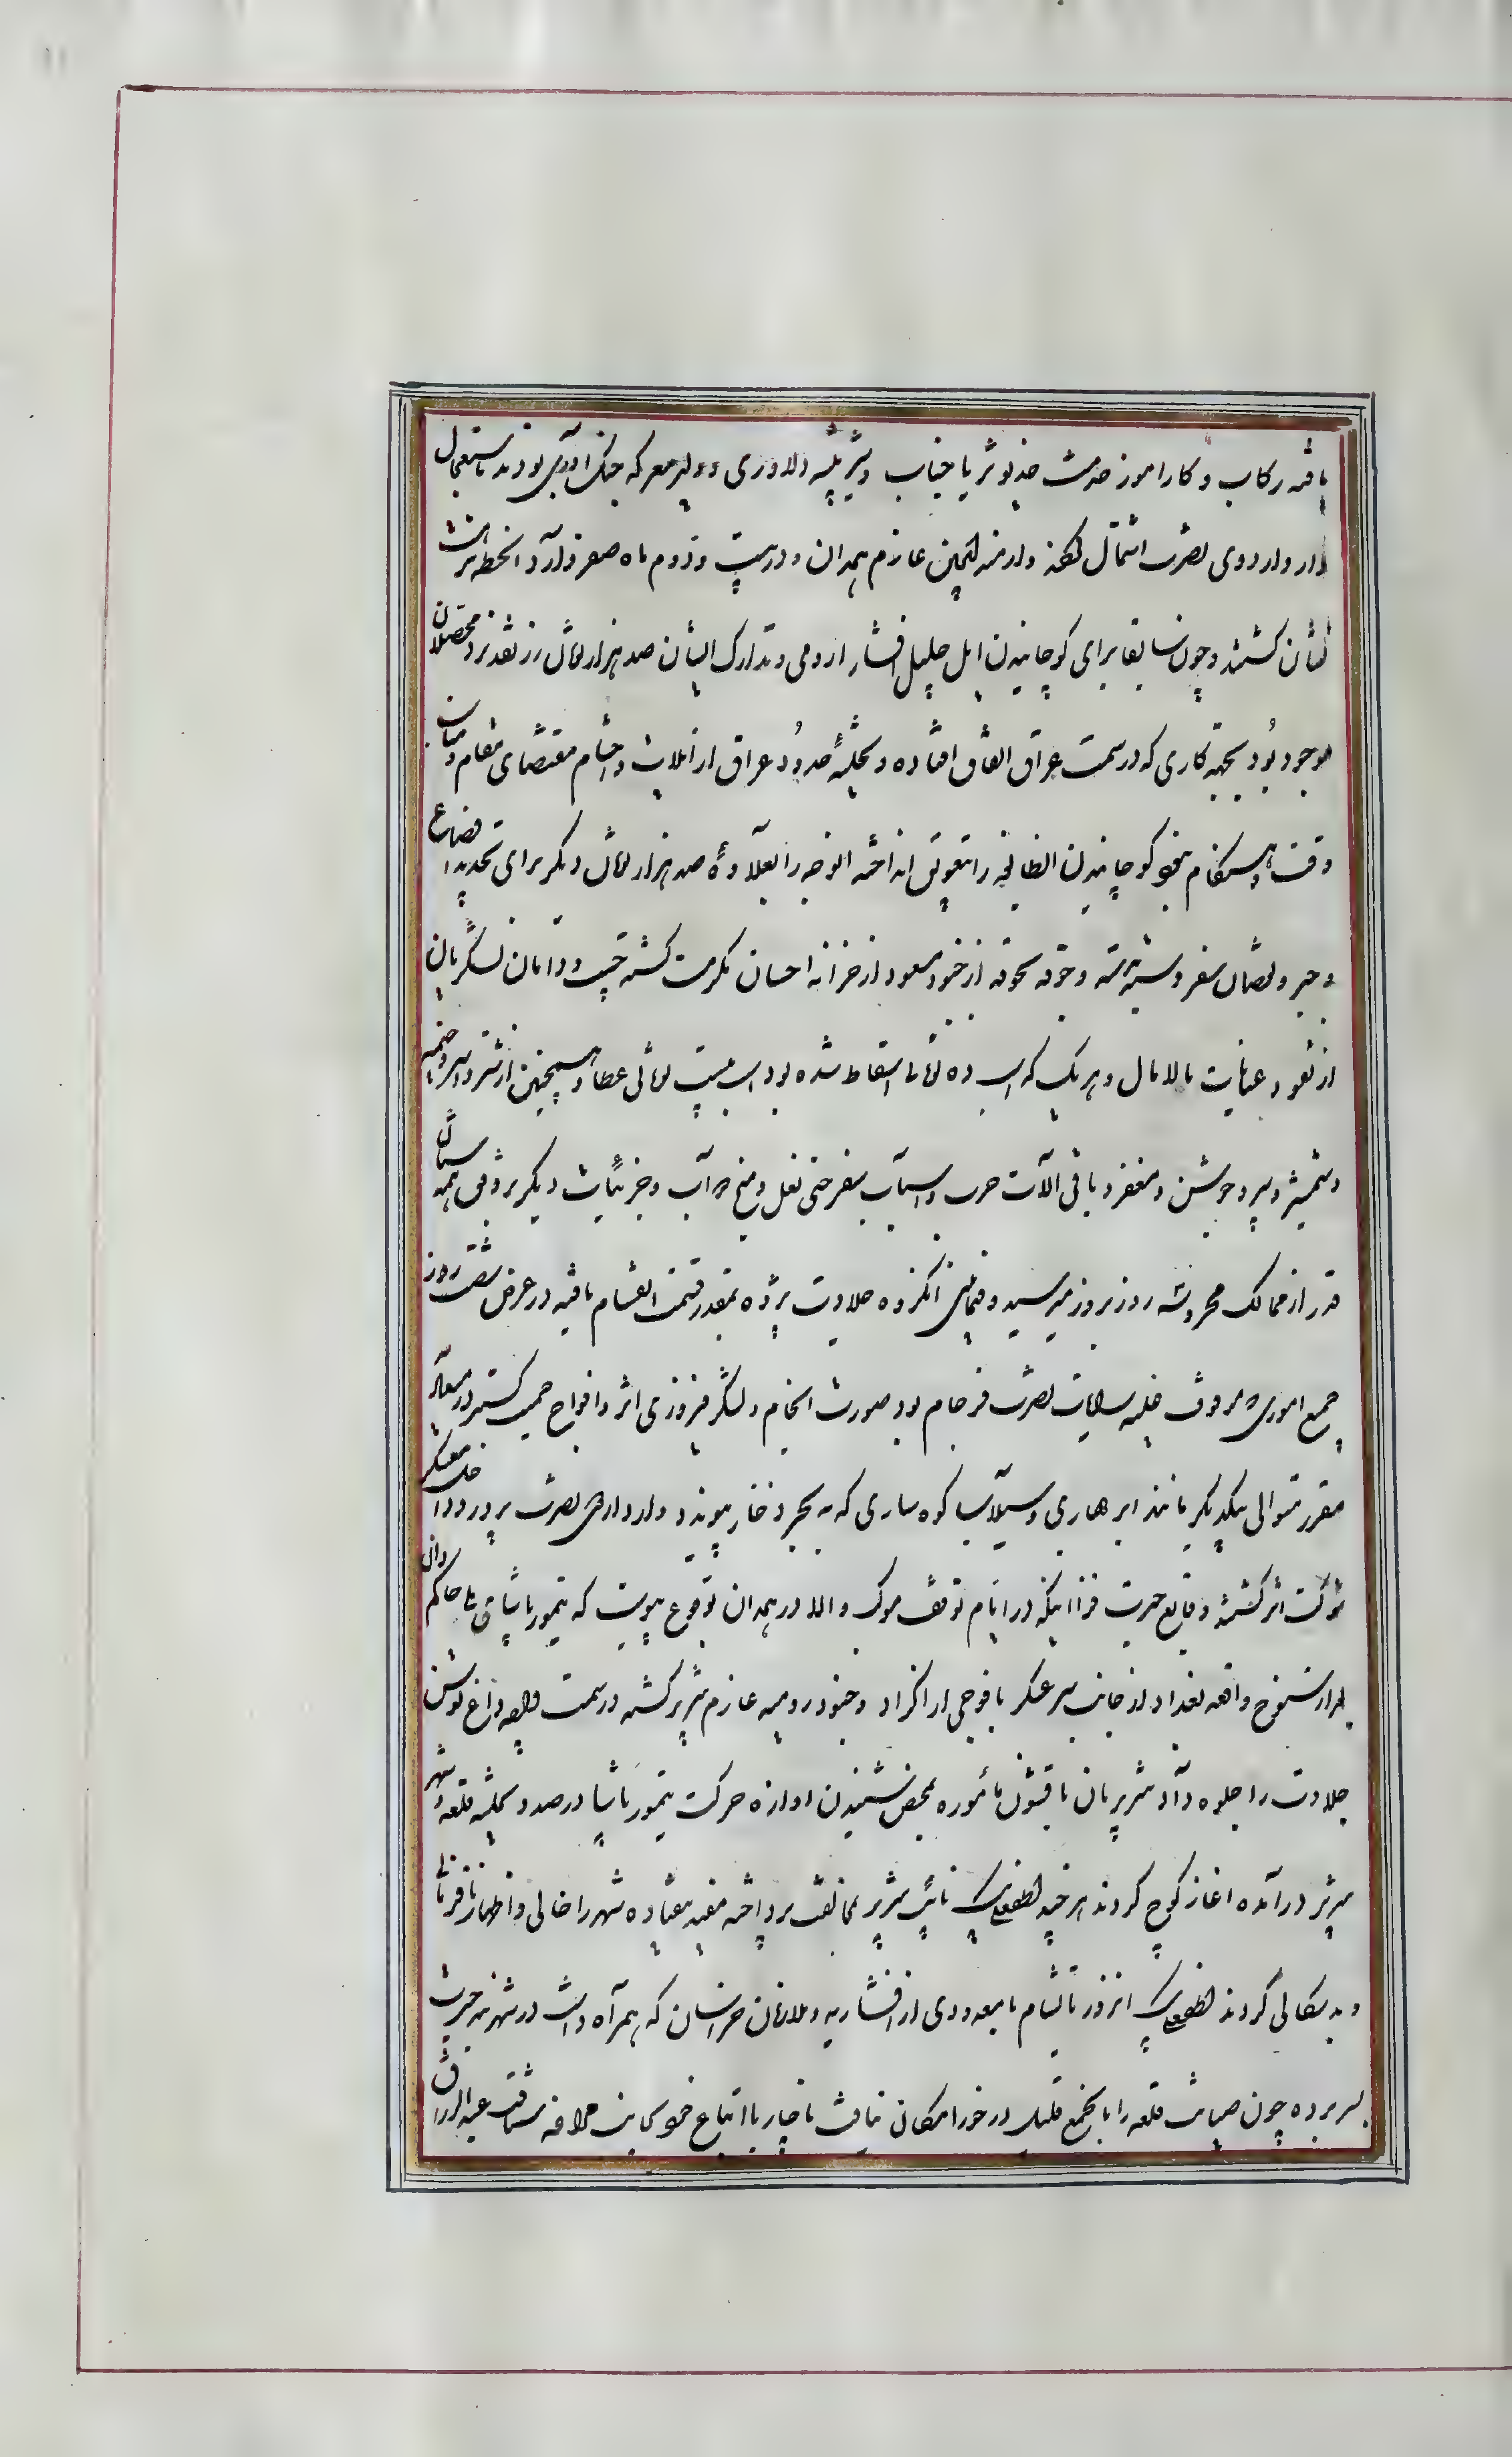 یافته رکاب و کارآموز خدمت خدیو ثریا جناب و شیر بیشه دلاوری و دلیر معرکه جنک آوری بودند باستعجال
وارد اردوی نصرت اشتمال و از منزل عازم همدان و در بیست و دوم ماه صفر وارد آنخطه بهشت
نشان کشتند و چون سابقا برای کوچانیدن ایل جلیل افشار ارومی و تدارک ایشان صد هزار تومان زر نقد نزد محصلان
موجود بود بجهة کاری که در سمت عراق اتفاق افتاده و تخلیهٔ حدود عراق از ایلات و احشام مقتضای مقام و مناسب
وقت و هنکام نبود کوچانیدن انطایفه را بتعویق انداخته آنوجه را بعلاوهٔ صد هزار تومان دیکر برای تجدید اوضاع
و جبر نقصان سفر و سر رشته و جوقه جوقه از جنود مسعود از خزانه احسان مکرمت کشته جیب و دامان لشکریان
از نقود عنایت مالامال و هر یک که اسب ده تومانی اسقاط شده بود اسب بیست تومانی عطا و همچنین از شتر و استر و خیمه
و شمشیر و سپر و جوشن و مغفر و باقی آلات حرب و اسباب سفر حتی نعل و میخ دواب و جزئیات دیکر بر وفق همه
قدر از ممالک محروسه روز بروز میرسید و فیمابین آنکروه جلادت پژوه بقدر قسمت انقسام یافته در عرض شصت روز
جمیع اموری که موقوف علیه سامان نصرت فرجام بود صورت انجام و لشکر فیروزی اثر و افواج حمیت کستر در معاد
مقرر متوالی یکدیکر مانند ابر بهاری و سیلاب کوهساری که به بحر ذخار پیوندد وارد اردوی نصرت پرور و داخل معسکر
شوکت اثر کشتند وقایع حیرت فزا اینکه در ایام توقف موکب والا در همدان بوقوع پیوست که تیمور پاشای حاکم وان
بعد از سنوح واقعه بغداد از جانب سر عسکر با فوجی از اکراد و جنود رومیه عازم تبریز کشته در سمت
جلادت را جلوه داد تبریزیان با قشون مأموره بمحض شنیدن آوازه حرکت تیمور پاشا در صدد تخلیه قلعه و شهر
تبریز درآمده آغاز کوچ کردند هر چند لطفعلی بیک نایب تبریز بممانعت پرداخته مفید نیفتاده شهر را خالی و اظهار نافرمانی
و بدسکالی کردند لطفعلی بیک آنروز تا شام با معدودی از افشاریه و ملازمان خراسان که همراه داشت در شهر بحیرت
بسر برده چون صیانت قلعه را با جمع قلیل در خور امکان نیافت ناچار با اتباع خود بجانب عبدالرزاق